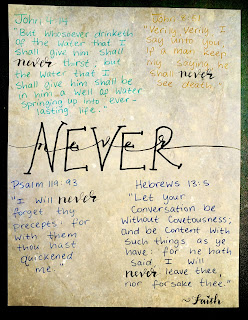 John 4:14
"But whosoever drinketh
of the water that I
shall give him shall
never thirst; but
the water that I
shall give him shall be
in him a well of water
springing up into ever-
lasting life."
John 8:51
"Verily, verily I
say unto you
If a man keep
my saying, he
shall never
see death."
NEVER
never
Psalm 119:93
"I will never
forget thy
precepts: for
with them
thou hast
quickened
me."
Hebrews 13:5
"Let your
Conversation be
without Covetousness;
and be content with
such things as ye
have: for he hath
said I will
never leave thee,
nor forsake thee."
~Faith